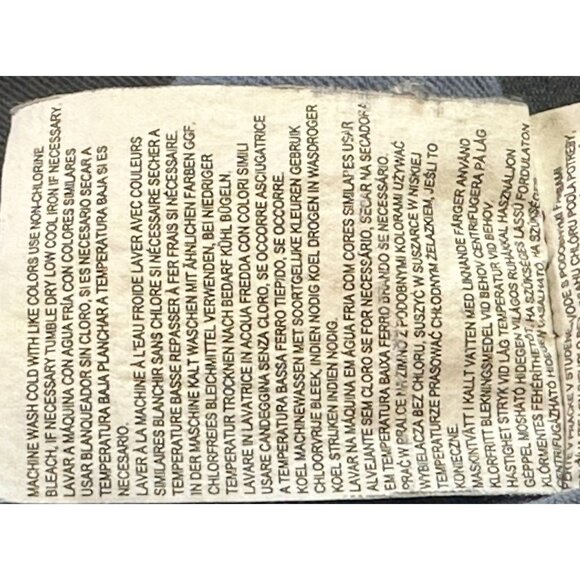 MACHINE WASH COLD WITH LIKE COLORS USE NON-CHLORINE
BLEACH, IF NECESSARY TUMBLE DRY LOW COOL IRON IF NECESSARY.
LAVAR A MÁQUINA CON AGUA FRÍA CON COLORES SIMILARES
USAR BLANQUEADOR SIN CLORO, SI ES NECESARIO SECAR A
TEMPERATURA BAJA PLANCHAR A TEMPERATURA BAJA SI ES
NECESARIO.
LAVER À LA MACHINE À L'EAU FROIDE LAVER AVEC COULEURS
SIMILAIRES BLANCHIR SANS CHLORE SI NÉCESSAIRE SECHER A
TEMPERATURE BASSE REPASSER À FER FRAIS SI NÉCESSAIRE.
IN DER MASCHINE KALT WASCHEN MIT ÄHNLICHEN FARBEN GGF.
CHLORFREIES BLEICHMITTEL VERWENDEN, BEI NIEDRIGER
TEMPERATUR TROCKNEN NACH BEDARF KÜHL BÜGELN.
LAVARE IN LAVATRICE IN ACQUA FREDDA CON COLORI SIMILI
USARE CANDEGGINA SENZA CLORO, SE OCCORRE ASCIUGATRICE
A TEMPERATURA BASSA FERRO TIEPIDO, SE OCCORRE.
KOEL MACHINEWASSEN MET SOORTGELIJKE KLEUREN GEBRUIK
CHLOORVRIJE BLEEK, INDIEN NODIG KOEL DROGEN IN WASDROGER
KOEL STRIJKEN INDIEN NODIG.
LAVAR NA MÁQUINA EM ÁGUA FRIA COM CORES SIMILARES USAR
ALVEJANTE SEM CLORO SE FOR NECESSÁRIO, SECAR NA SECADORA
EM TEMPERATURA BAIXA FERRO BRANDO SE NECESSARIO.
PRAĆ W PRALCE NA ZIMNO Z PODOBNYMI KOLORAMI UŻYWAĆ
WYBIELACZA BEZ CHLORU, SUSZYĆ W SUSZARCE W NISKIEJ
TEMPERATURZE PRASOWAĆ CHŁODNYM ŻELAZKIEM, JEŚLI TO
KONIECZNE.
MASKINTVÄTT I KALLT VATTEN MED LIKNANDE FÄRGER ANVÄND
KLORFRITT BLEKNINGSMEDEL VID BEHOV CENTRIFUGERA PÅ LÅG
HASTIGHET STRYK VID LÅG TEMPERATUR VID BEHOV.
GÉPPEL MOSHATÓ HIDEGEN VILÁGOS RUHÁKKAL HASZNÁLJON
KLÓRMENTES FEHÉRÍTHETŐT, HA SZÜKSÉGES LASSÚ FORDULATON
CENTRIFUGÁZHATÓ HIDEGEN VASALHATÓ HA SZÜKSÉGES
PERTE V PRAČCE V STUDENÉ VODĚ S PODOBNÝMI BARVAMI
CHLORU PODLA POTREBY